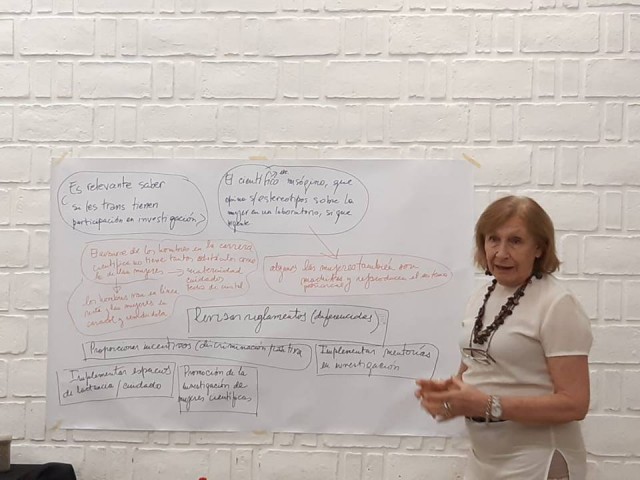 Es relevante saber
si les trans tienen
participación en investigación?
El científico misógino, que
opina s/estereotipos sobre la
mujer en un laboratorio, si que
El avance de los hombres en la carrera
científica no tiene tantos obstáculos como
la de las mujeres → maternidad
cuidados
techo de cristal
los hombres van en línea
recta y las mujeres en
las mujeres también son
machistas y reproducen el sistema
patriarcal
Revisar reglamentos (diferenciados)
Proporcionar incentivos (discriminación positiva
Implementar mentorías
en investigación
Implementar espacios
de lactancia / cuidado
Promoción de la
investigación de
mujeres científicas